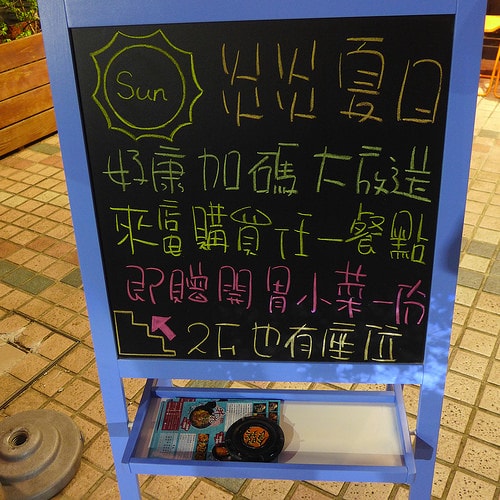 Sun
炎炎夏日
好康加碼大放送
來當購買任一餐點
即贈開胃小菜一份
2F也有座位